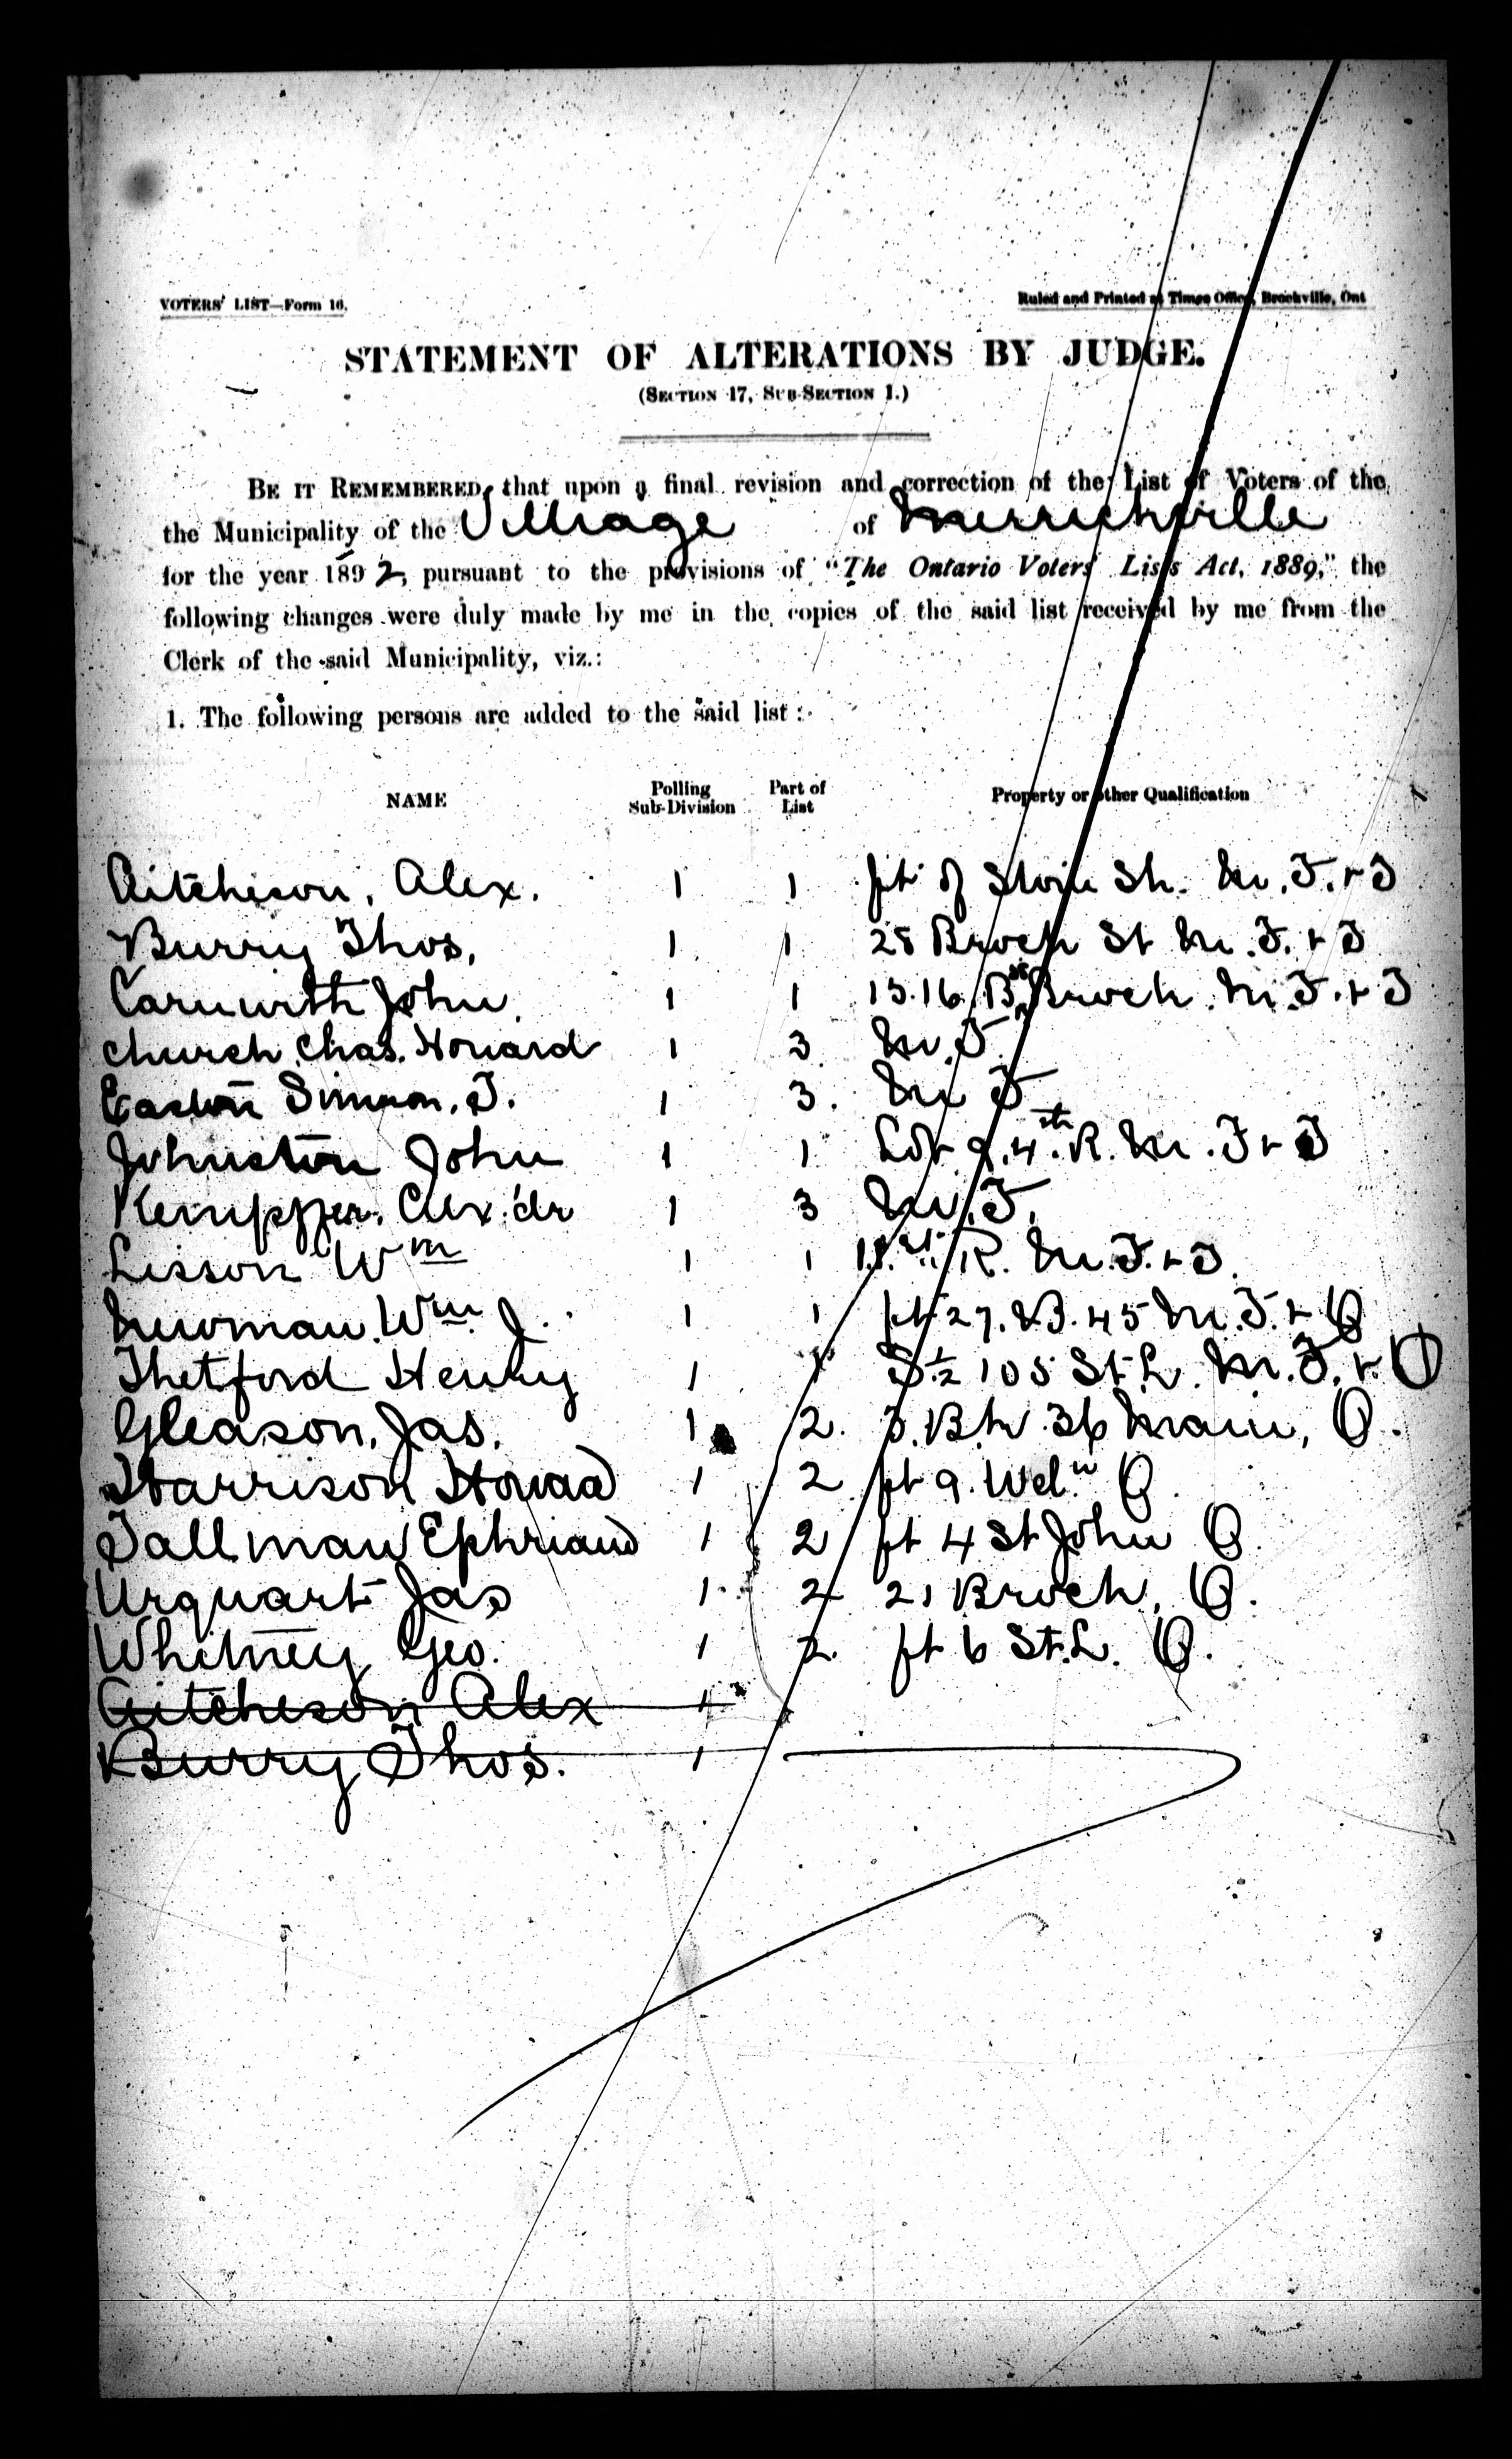 VOTERS' LIST—Form 16.
Ruled and Printed at Times Office, Brockville, Ont
STATEMENT OF ALTERATIONS BY JUDGE.
(SECTION 17, SUB-SECTION 1.)
BE IT REMEMBERED, that upon a final revision and correction of the List of Voters of the
the Municipality of the Village of Merrickville
for the year 1892, pursuant to the provisions of "The Ontario Voters' Lists Act, 1889," the
following changes were duly made by me in the copies of the said list received by me from the
Clerk of the said Municipality, viz.:
1. The following persons are added to the said list:
NAME Polling Sub-Division Part of List Property or other Qualification
Aitcheson, Alex. 1 1 pt of St. M. F. + T
Burry Thos. 1 1 28 Brock St M. F. + T
John 1 1 15.16 Brock. M. F. + T
Church Chas. Howard 1 3 M. F.
Easton Simson. T. 1 3. M F
Johnston John 1 1 Lot 9. 4th R. M. F + T
Kempper. Alx'dr 1 3 M. F.
Lisson Wm 1 1 R. M. F. + T.
Newman Wm. J. 1 1 pt 27. B. 45 M. F. + O
Thetford Henry 1 1 S ½ 105 St. L. M. F. + O
Gleason, Jas. 1 2. 3. 36 Main, O.
Harrison Howad 1 2 pt 9. Weln O
Tallman Ephriam 1 2 pt 4 St John O.
Urquart Jas 1 2 21 Brock, O.
Whitney Geo. 1 2. pt 6 St. L. O.
Aitcheson Alex 1
Burry Thos. 1